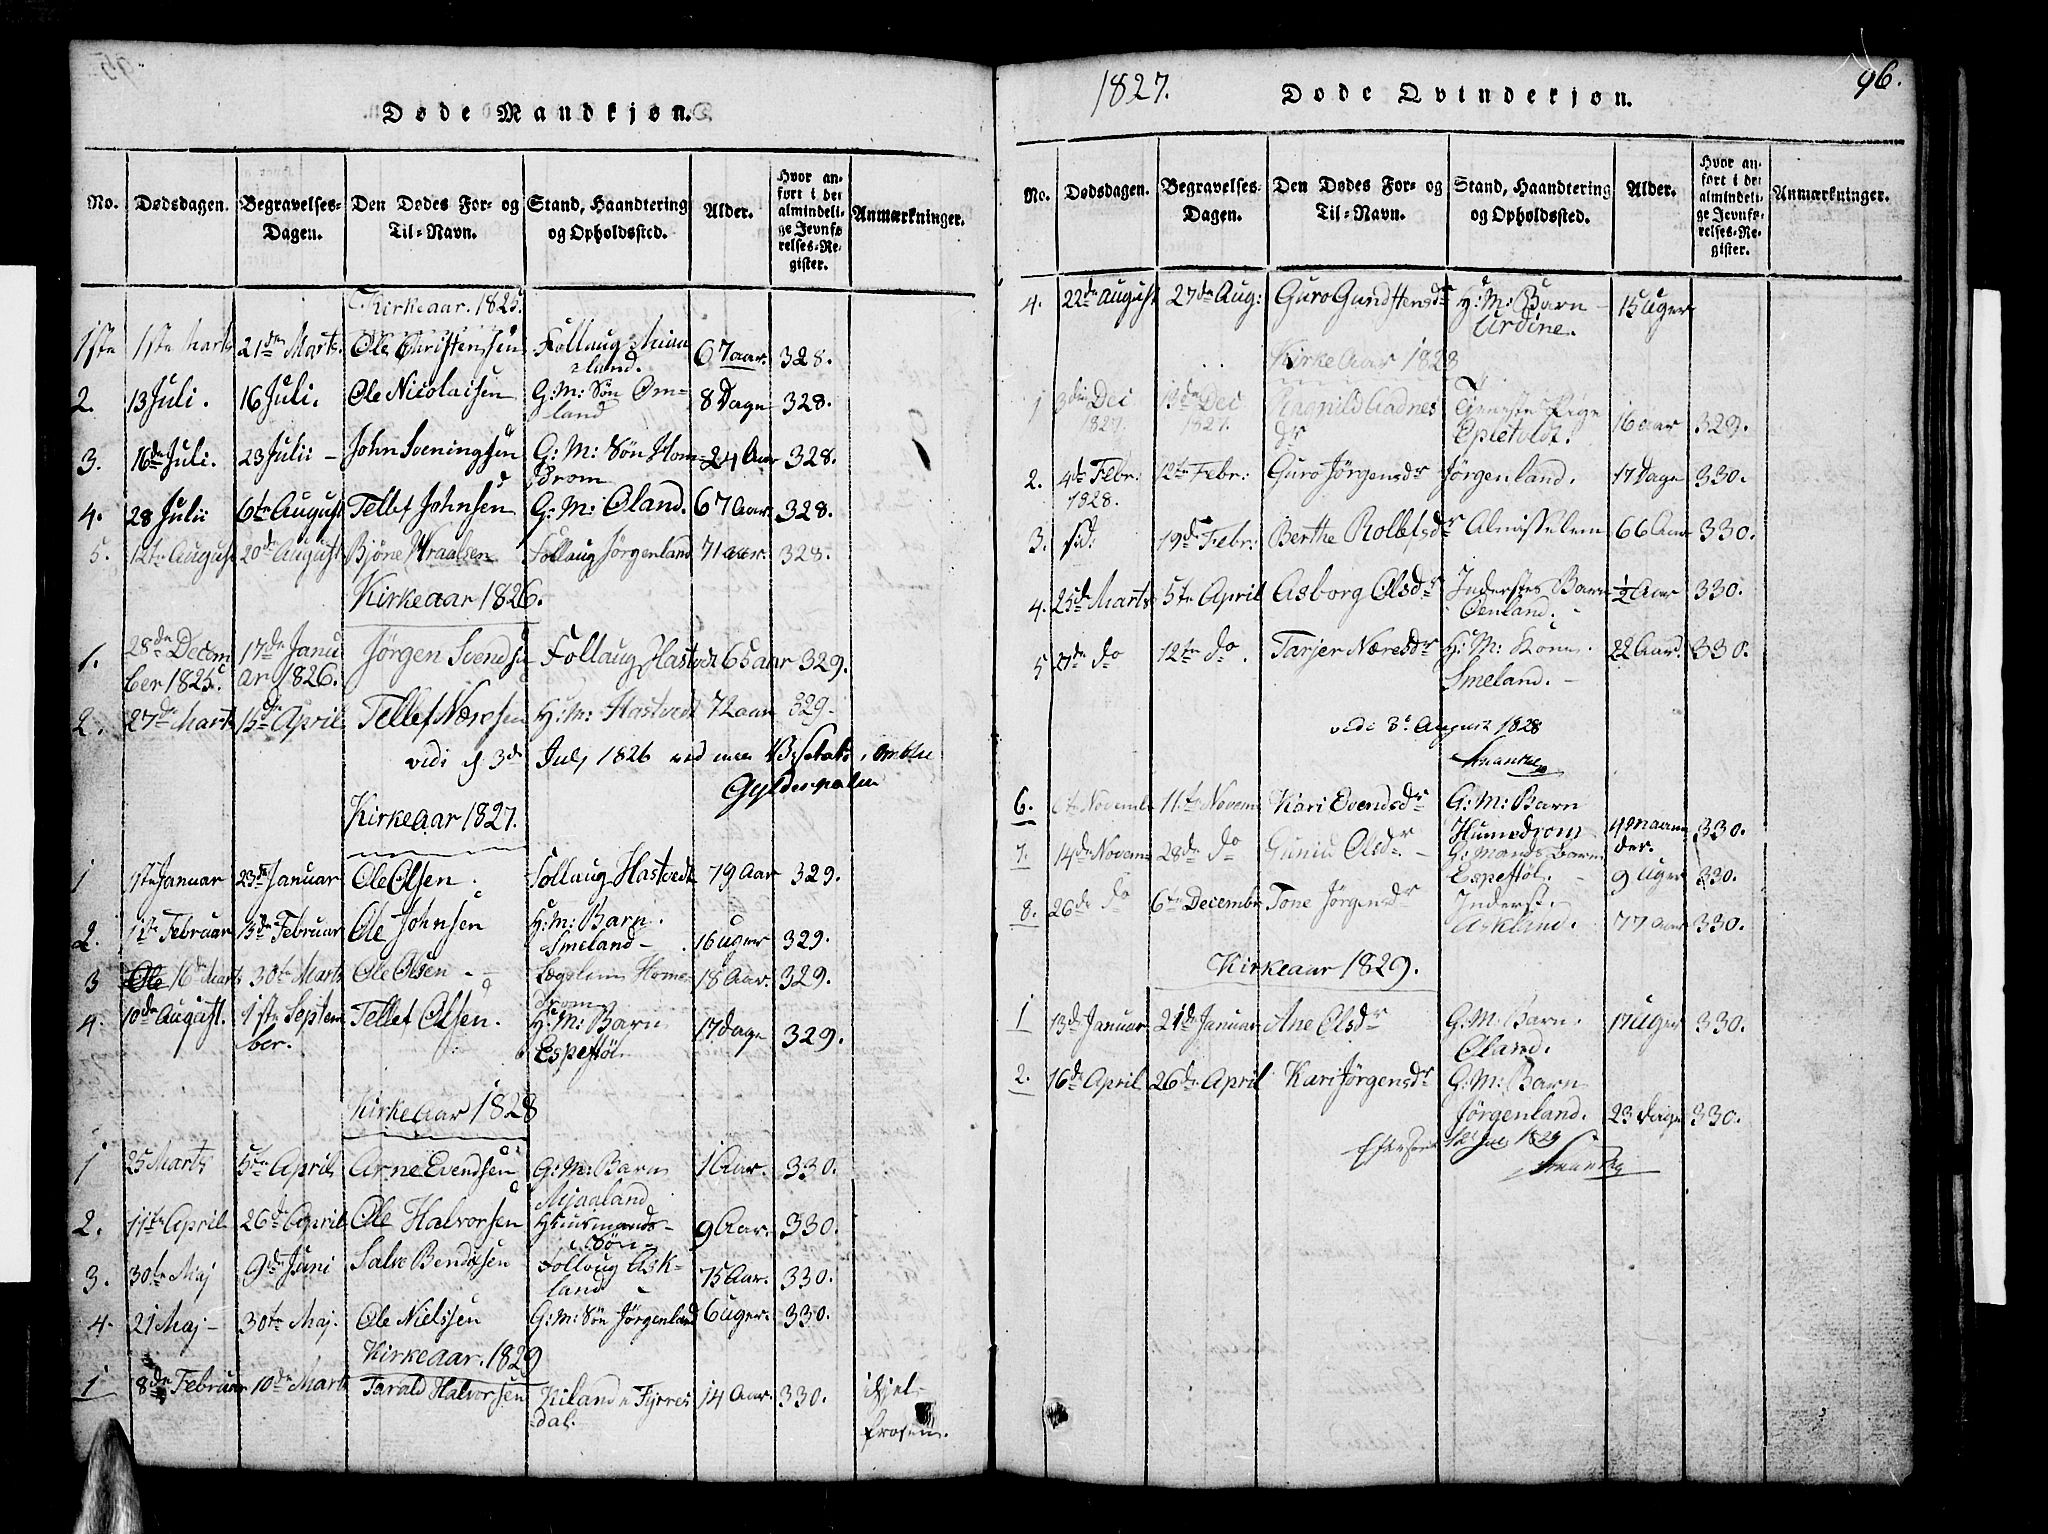 Døde Mandkjøn.
No. Dødsdagen. Begravelses-Dagen. Den Dødes For- og Til-Navn. Stand, Haandtering og Opholdssted. Alder. Hvor anført i det almindelige Jevnførelses-Register. Anmærkninger.
Kirkeaar. 1825.
1ste 1ste Marts 21de Marts. Ole Christensen Follaug Miaaland. 67 aar. 328.
2. 13 Juli. 16 Juli. Ole Nicolaisen G: M: Søn Omland 8 Dage 328.
3. 16de Juli. 23 Julii - John Sveningsen G: M: Søn Homdrom 24 Aar 328.
4. 28 Julii 6te August Tellef Johnsen G: M: Øland. 67 Aar 328.
5. 12te August 20de August Bjøne Wraalsen Follaug Jørgenland 71 aar. 328.
Kirkeaar 1826.
1. 28de December 1825. 17de Januar 1826. Jørgen Svendsen Follaug Hastvedt 65 aar 329.
2. 27de Marts 15de April Tellef Næresen H: M: Hastvedt 72 aar 329.
vidi d 3de July 1826 ved min Visitats i Omblie
Gyldenpalm
Kirkeaar 1827.
1 9te Januar 23de Januar Ole Olsen. Follaug Hastvedt 79 Aar 329.
2. 1ste Februar 15de Februar Ole Johnsen H: M: Barn. Smeland - 16 uger 329.
3 16de Marts 30te Marts Ole Olsen - Lægslem Homedrom 18 Aar. 329.
4. 10de August. 1ste September. Tellef Olsen. H: M: Barn Espestøl. 17 dage 329.
Kirkeaar 1828
1 25 Marts 5te April Arne Evendsen G: M: Barn Mjaaland 1 Aar. 330.
2. 11te April 26de April Ole Halvorsen Huusmands-Søn - 9 Aar. 330.
3. 30te Maj 9de Juni Salve Bendixsen Follaug Askland 75 Aar. 330.
4. 21 Maj - 30te Maj. Ole Nielssen G: M: Søn Jørgenland 6 uger. 330.
Kirkeaar. 1829
1 8de Februar 10de Marts Tarald Halvorsen Kiland i Fyrresdal. 14 Aar. 330. ihjelfrosen.
1827. Døde Qvindekjøn. 96.
No. Dødsdagen. Begravelses-Dagen. Den Dødes For- og Til-Navn. Stand, Haandtering og Opholdssted. Alder. Hvor anført i det almindelige Jevnførelses-Register. Anmærkninger.
4. 22de August 27de Aug: Guro Gundstensdr H: M: Barn - Urdine. 15 Uger
Kirke Aar 1828
1 3die Dec 1827. 13de Dec 1827. Ragnild Aadnesdr Tjeneste Pige Epletvedt. 16 aar 329.
2. 4de Febr: 1828. 12te Febr: Guro Jørgensdr Jørgenland. 17 Dage 330.
3. 19de Febr: Berthe Rollefsdr Almisselem 66 Aar 330.
4. 25de Marts 5te April Asborg Olsdr Inderstes Barn Øenland. - ½ Aar 330.
5 do 12te do. Tarjer Næresdr H: M: Kone. Smeland. - 22 Aar. 330.
vidi 3d August 1828
6. Novemb 11te Novem Kari Evendsdr G: M: Barn Humedrom 4 Maaneder. 330.
7. 14de Novem 28de do Olsdr - G: Mands barn Espestøl. - 9 Uger 330.
8. 26de do 6te Decembr Tone Jørgensdr Inderst. Askland. 77 Aar 330.
Kirkeaar 1829.
1 13de Januar 21de Januar Ane Olsdr G: M: Barn. Øland. 17 Uger 330.
2. 16de April 26de April Kari Jørgensdr G: M: Barn Jørgenland. 23 dage 330.
Efterseet 12 1829